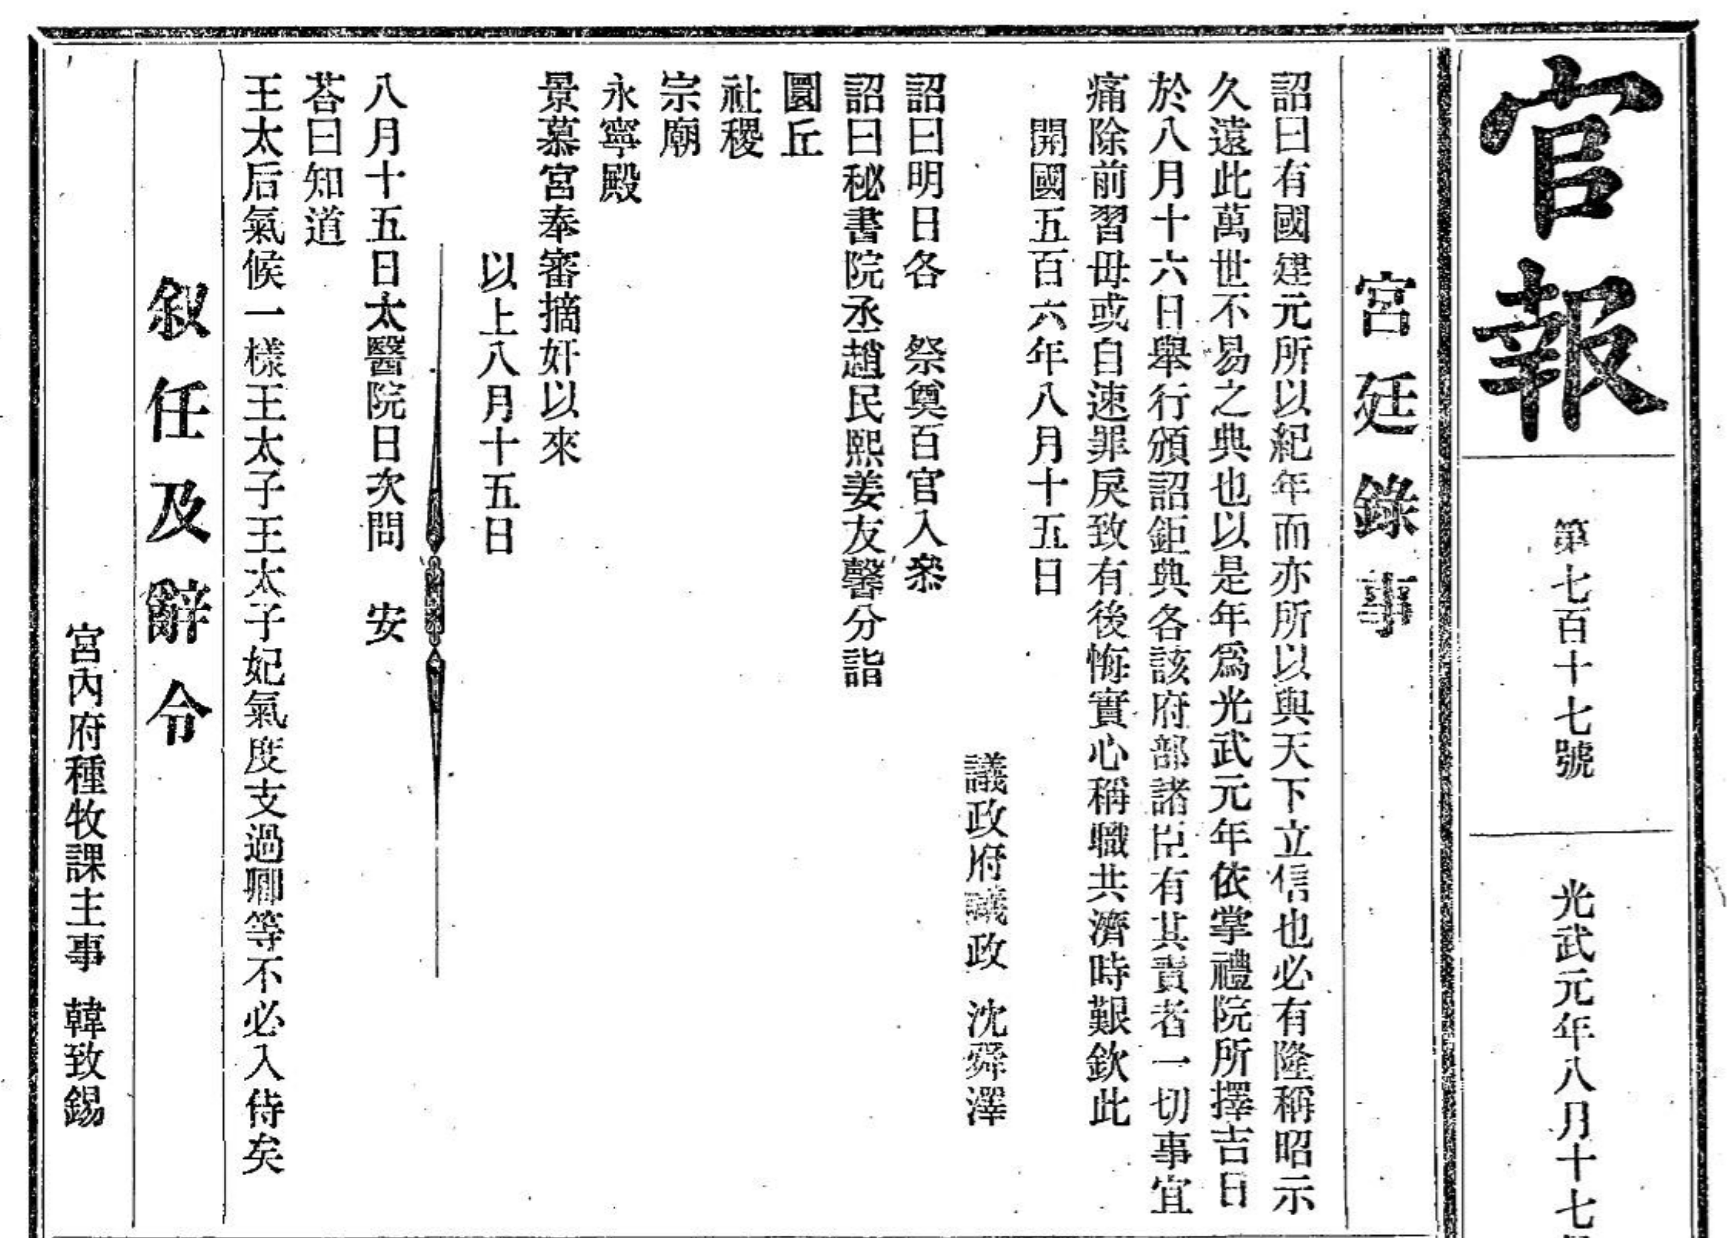 官報
第七百十七號
光武元年八月十七
宮廷錄事
詔曰有國建元所以紀年而亦所以與天下立信也必有隆稱昭示
久遠此萬世不易之典也以是年爲光武元年依掌禮院所擇吉日
於八月十六日舉行頒詔鉅典各該府部諸臣有其責者一切事宜
痛除前習毋或自速罪戾致有後悔實心稱職共濟時艱欽此
開國五百六年八月十五日
議政府議政 沈舜澤
詔曰明日各 祭奠百官入叅
詔曰秘書院丞趙民熙姜友馨分詣
圜丘
社稷
宗廟
永寧殿
景慕宮奉審摘奸以來
以上八月十五日
八月十五日太醫院日次問 安
荅曰知道
王太后氣候一樣王太子王太子妃氣度支過卿等不必入侍矣
敍任及辭令
宮內府種牧課主事 韓致錫